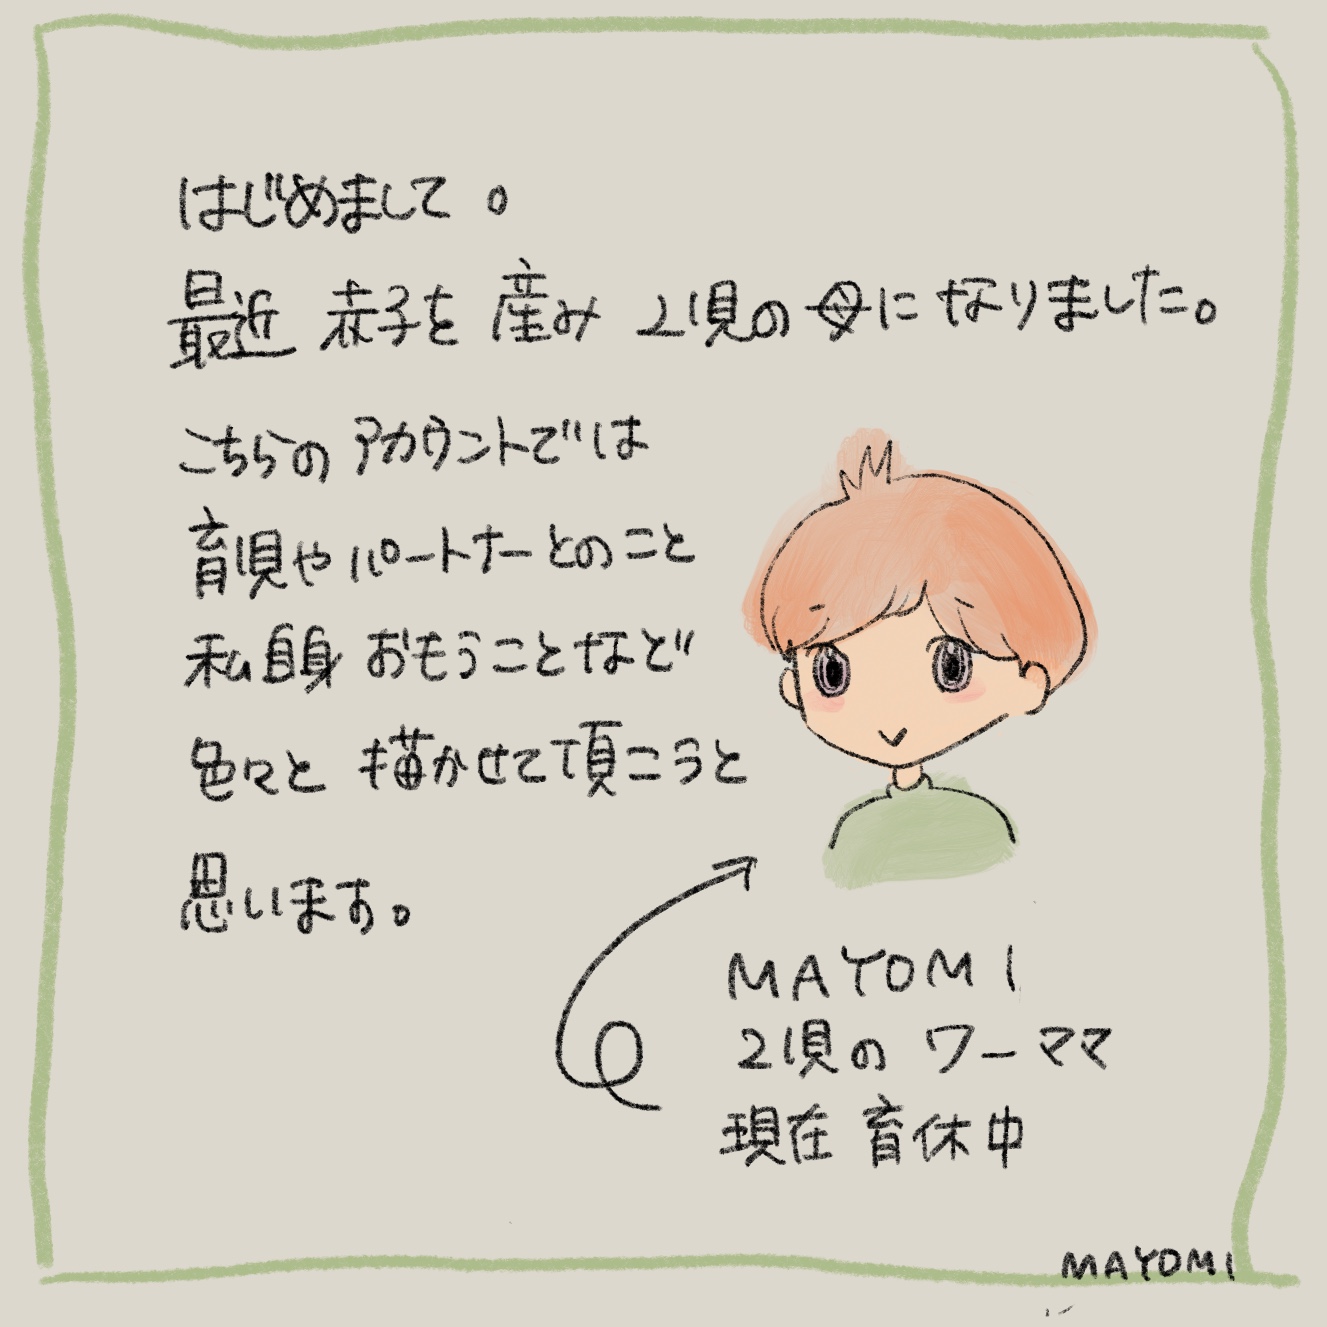 はじめまして。
最近 赤子を 産み 2児の 母に なりました。
こちらの アカウントでは
育児や パートナーとの こと
私自身 おもうことなど
色々と 描かせて頂こうと
思います。
MAYOMI
2児の ワーママ
現在 育休中
MAYOMI